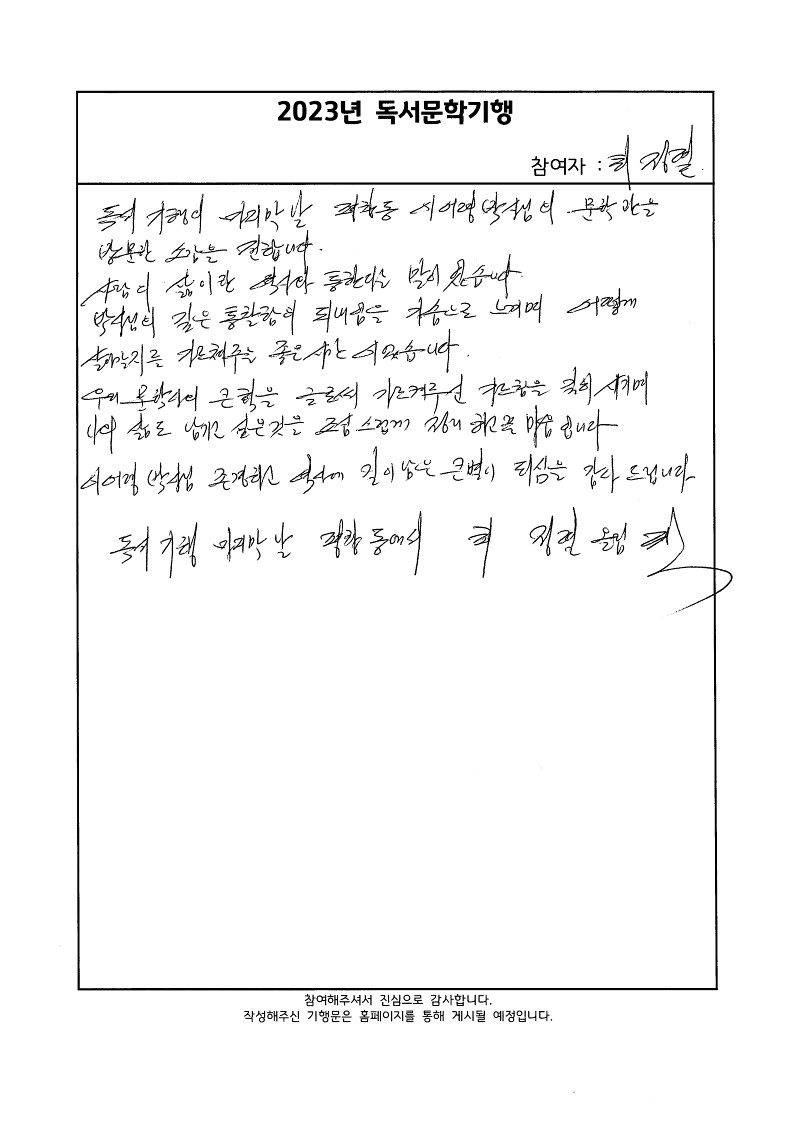 2023년 독서문학기행
참여자 : 피 정열.
독서 기행의 마지막 날 평창동 이어령 박사님의 문학관을
방문한 소감을 전합니다.
사람의 삶이란 역사와 통한다는 말이 있습니다
박사님의 깊은 통찰함의 되내임을 가슴으로 느끼며 어떻게
살아갈지를 가르쳐주는 좋은 시간이었습니다.
우리 문학사의 큰 획을 글로써 가르켜주신 가르침을 익히 새기며
나의 삶도 남기고 싶은것을 조심스럽게 정리 하고픈 마음 입니다
이어령 박사님 존경하고 역사에 길이 남은 큰별이 되심을 감사 드립니다
독서 기행 마지막 날 평창동에서 피 정열 올림
참여해주셔서 진심으로 감사합니다.
작성해주신 기행문은 홈페이지를 통해 게시될 예정입니다.